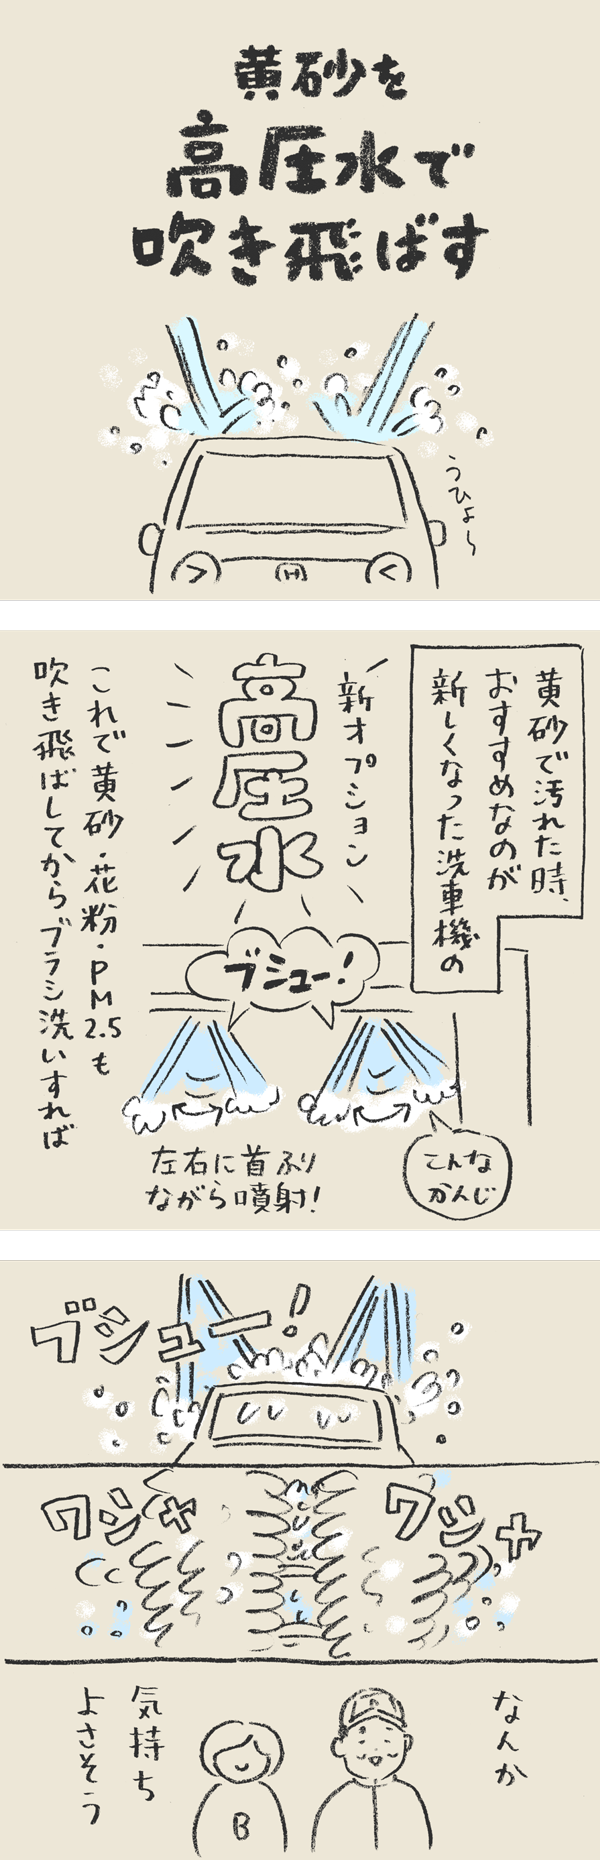 黄砂を
高圧水で
吹き飛ばす
うひょ〜
H
黄砂で汚れた時、
おすすめなのが
新しくなった洗車機の
新オプション
高圧水
ブシュー!
これで黄砂・花粉・PM2.5も
吹き飛ばしてからブラシ洗いすれば
左右に首ふり
ながら噴射!
こんな
かんじ
ブシュー!
ワシャ
ワシャ
なんか
気持ち
よさそう
B